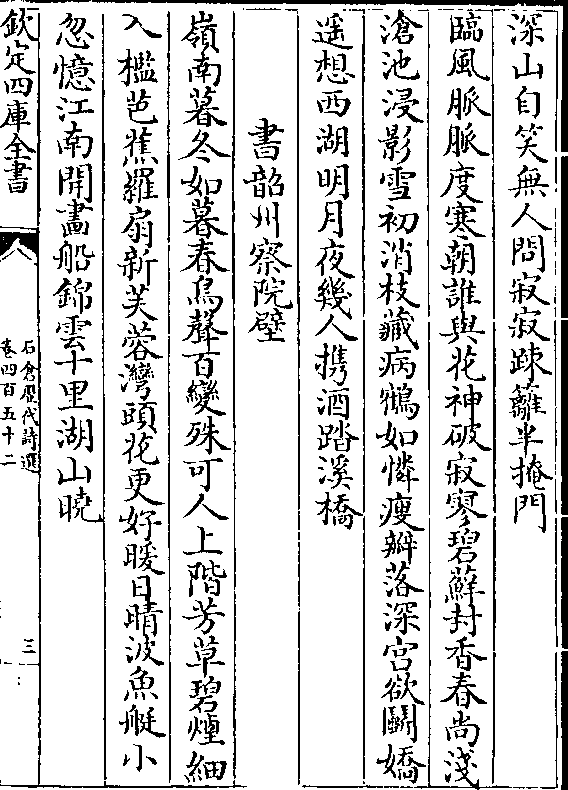 深山自笑無人問寂寂疎籬半掩門
臨風脈脈度寒朝誰與花神破寂寥碧蘚封香春尚淺
滄池浸影雪初消枝藏病鶴如憐瘦瓣落深宫欲鬭嬌
遥想西湖明月夜幾人携酒踏溪橋
書韶州察院壁
嶺南暮冬如暮春鳥聲百變殊可人上階芳草碧煙細
入檻芭蕉羅扇新芙蓉灣頭花更好暖日晴波魚艇小
忽憶江南開畵船錦雲十里湖山曉
欽定四庫全書
石倉歷代詩選
卷四百五十二
三